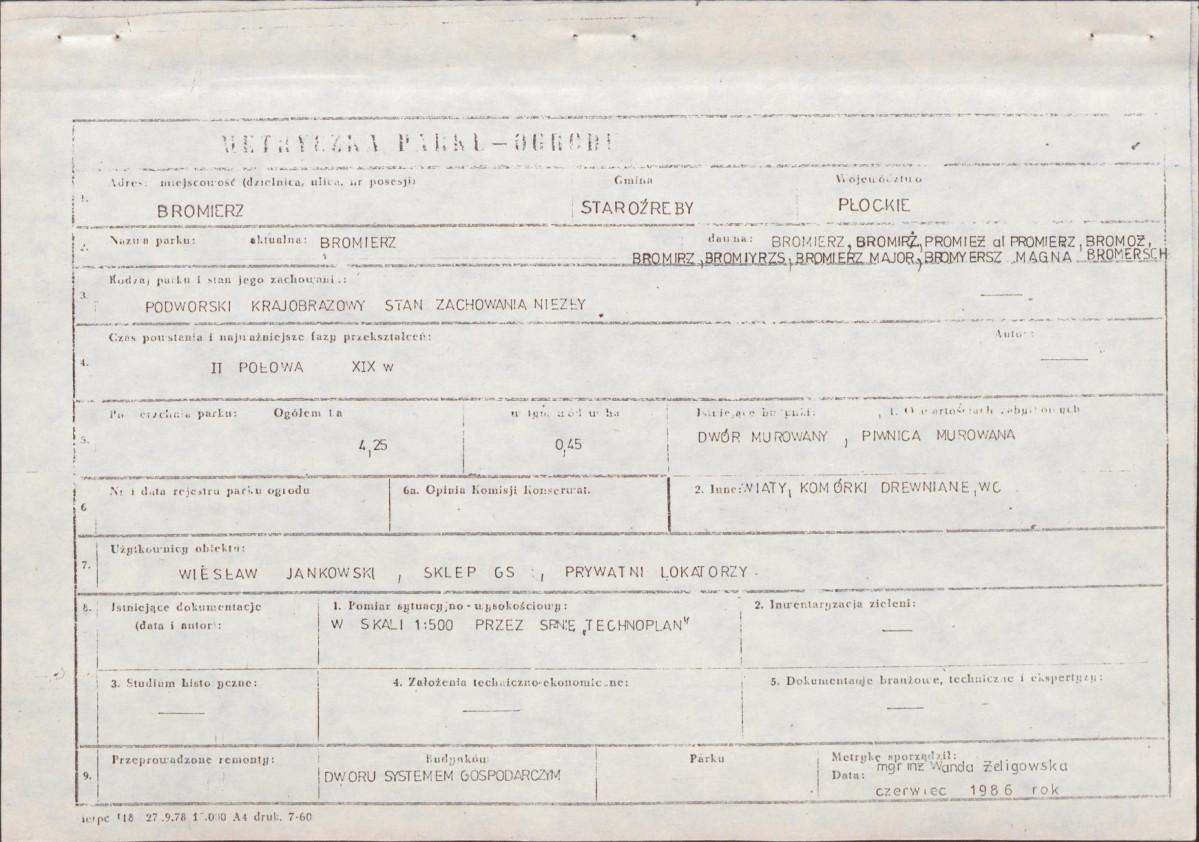 METRYCZKA PARKU-OGRODU
1. Adres: miejscowość (dzielnica, ulica, nr posesji) Gmina Województwo
BROMIERZ STAROŹREBY PŁOCKIE
2. Nazwa parku: aktualna: BROMIERZ dawna: BROMIERZ, BROMIRŻ, PROMIEŻ al PROMIERZ, BROMOŻ,
BROMIRZ, BROMIYRZS, BROMIERZ MAJOR, BROMYERSZ MAGNA BROMERSCH
3. Rodzaj parku i stan jego zachowania:
PODWORSKI KRAJOBRAZOWY STAN ZACHOWANIA NIEZŁY.
4. Czas powstania i najważniejsze fazy przekształceń: Autor:
II POŁOWA XIX w
5. Powierzchnia parku: Ogółem ha w tym wód w ha Istniejące budynki: 1. O wartościach zabytkowych
4,25 0,45 DWÓR MUROWANY, PIWNICA MUROWANA
6 Nr i data rejestru parku ogrodu 6a. Opinia Komisji Konserwat. 2. Inne: WIATY, KOMÓRKI DREWNIANE, WC
7. Użytkownicy obiektu:
WIESŁAW JANKOWSKI, SKLEP GS, PRYWATNI LOKATORZY.
8. Istniejące dokumentacje 1. Pomiar sytuacyjno-wysokościowy: 2. Inwentaryzacja zieleni:
(data i autor): W SKALI 1:500 PRZEZ SPNIĘ „TECHNOPLAN"
3. Studium historyczne: 4. Założenia techniczno-ekonomiczne: 5. Dokumentacje branżowe, techniczne i ekspertyzy:
9. Przeprowadzone remonty: Budynków Parku Metrykę sporządził:
DWORU SYSTEMEM GOSPODARCZYM mgr inż Wanda Żeligowska
Data: czerwiec 1986 rok
27.9.78 A4 druk. 7-60